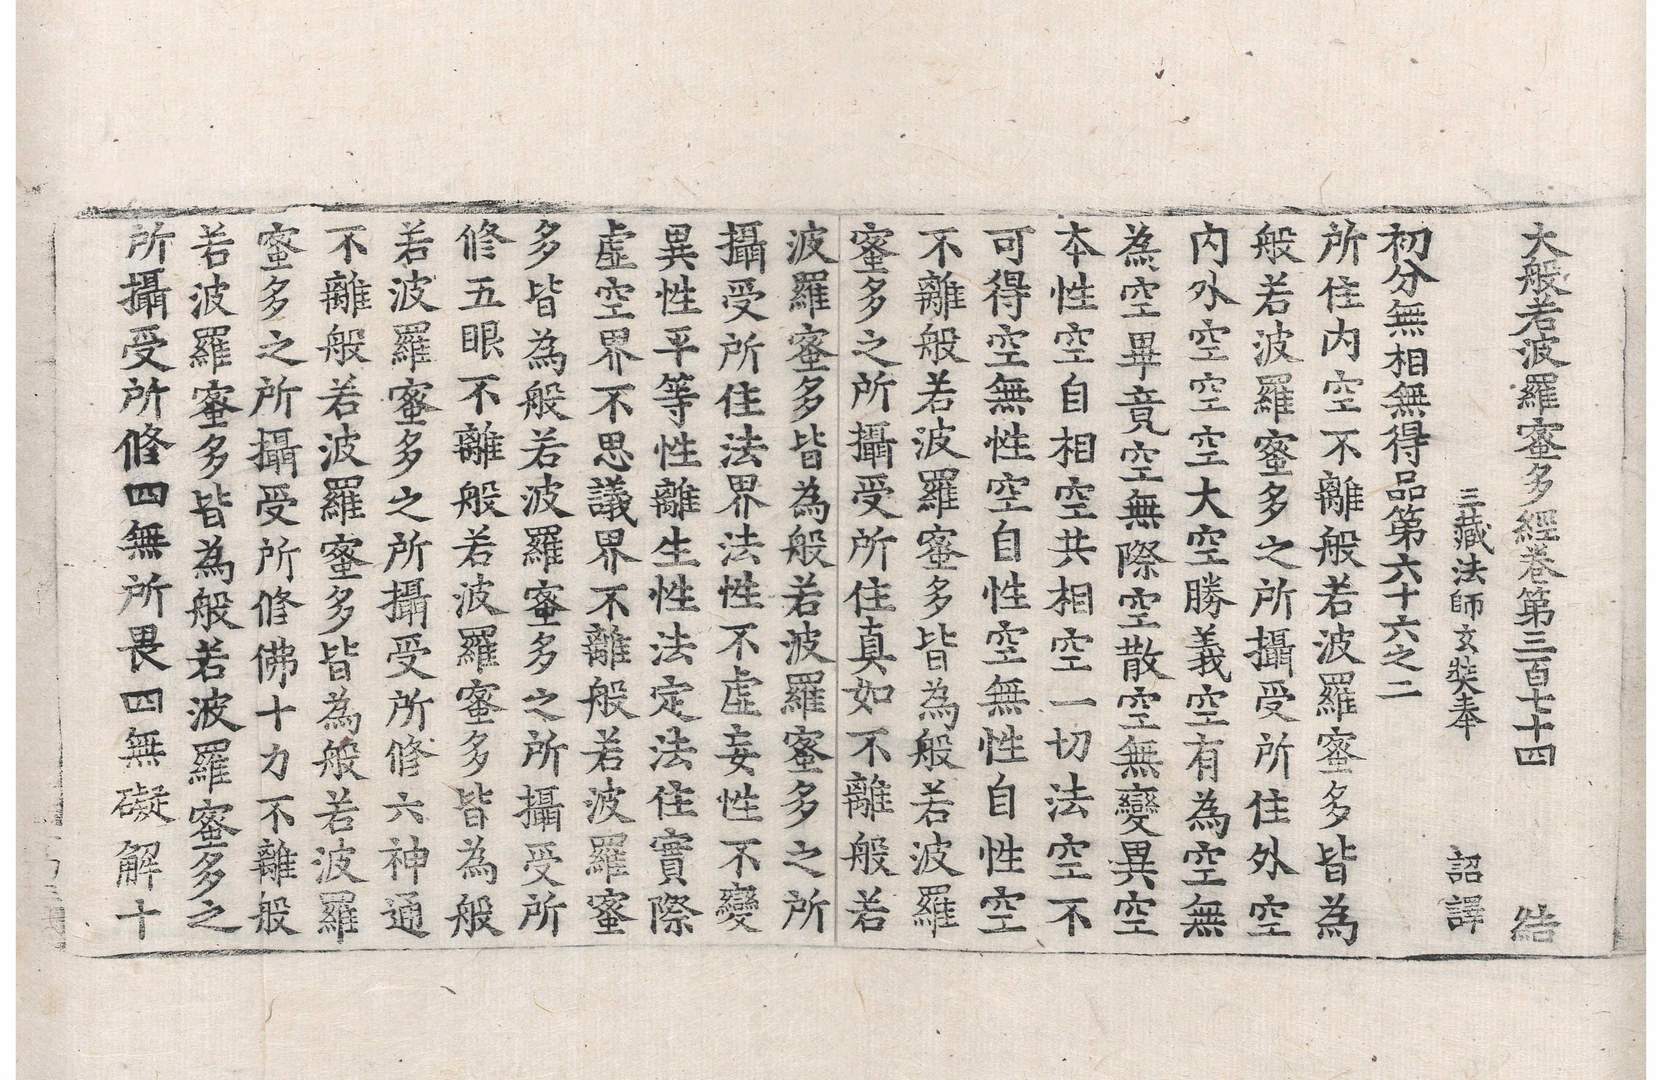 大般若波羅蜜多經卷第三百七十四
三藏法師玄奘奉 詔譯
初分無相無得品第六十六之二
所住內空不離般若波羅蜜多皆為
般若波羅蜜多之所攝受所住外空
內外空空空大空勝義空有為空無
為空畢竟空無際空散空無變異空
本性空自相空共相空一切法空不
可得空無性空自性空無性自性空
不離般若波羅蜜多皆為般若波羅
蜜多之所攝受所住真如不離般若
波羅蜜多皆為般若波羅蜜多之所
攝受所住法界法性不虛妄性不變
異性平等性離生性法定法住實際
虛空界不思議界不離般若波羅蜜
多皆為般若波羅蜜多之所攝受所
修五眼不離般若波羅蜜多皆為般
若波羅蜜多之所攝受所修六神通
不離般若波羅蜜多皆為般若波羅
蜜多之所攝受所修佛十力不離般
若波羅蜜多皆為般若波羅蜜多之
所攝受所修四無所畏四無礙解十